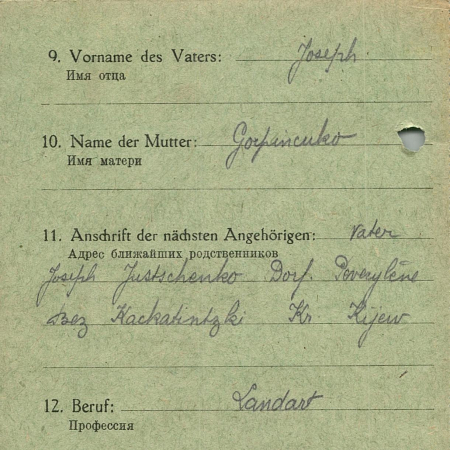 9. Vorname des Vaters: Joseph.
Имя отца
10. Name der Mutter: Gorpincuko
Имя матери
11. Anschrift der nächsten Angehörigen: Vater
Адрес ближайших родственников
Joseph Justschenko Dorf. Poverylène
Bez Kackatintzki Kr Kijew
12. Beruf: Landart
Профессия